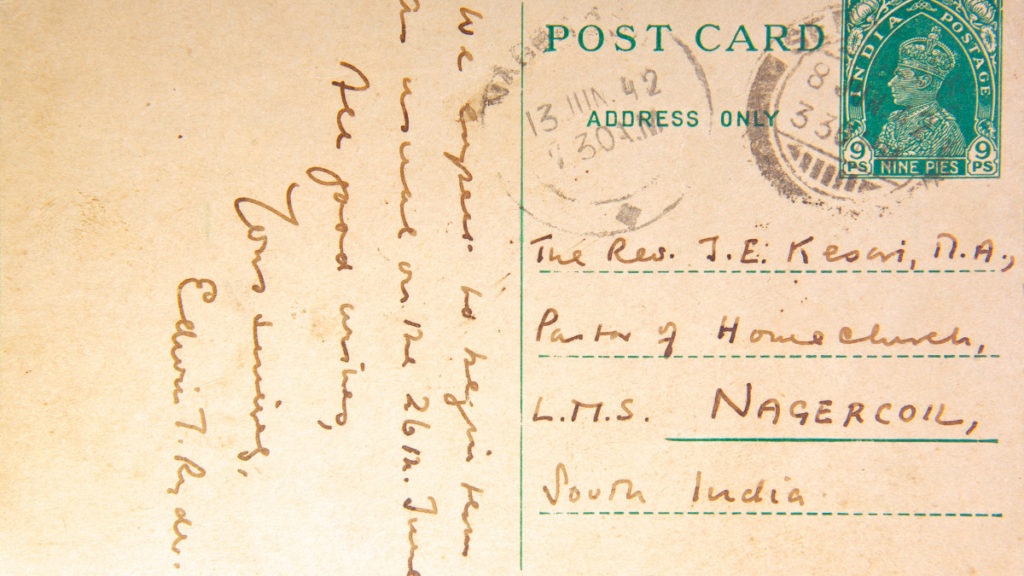 We expect to begin term
as usual on the 26th. June
All good wishes,
Yours sincerely,
Edwin T. Ryder.
POST CARD
ADDRESS ONLY
13 JUN. 42
30A.M
8
3 30
INDIA POSTAGE
9 PS NINE PIES 9 PS
The Rev. J. E. Kesari, M.A.,
Pastor of Home Church,
L.M.S. NAGERCOIL,
South India